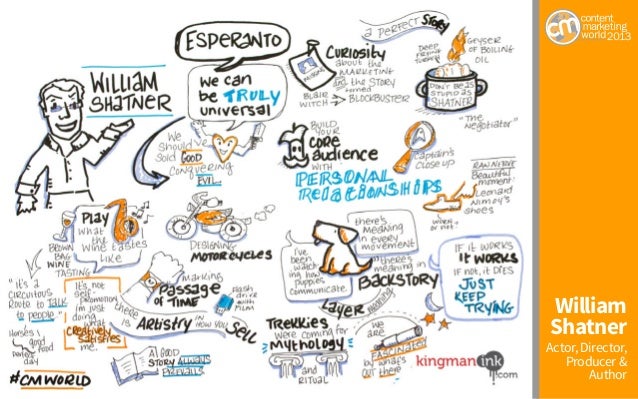 WILLIAM
SHATNER
ESPERANTO
we can
be TRULY
universal
We
should've
sold GOOD
CONQUERING
EVIL
Curiosity
about the
MARKETING
and the STORY
turned
BLAIR
WITCH → BLOCKBUSTER
a PERFECT Story
DEEP
FRYING
TURKEY
GEYSER
OF BOILING
OIL
DON'T BE AS
STUPID AS
SHATNER
"The
Negotiator"
BUILD
YOUR
core
audience
WITH
PERSONAL
RELATIONSHIPS
Captain's
close up
RAW NERVE
Beautiful
moment:
Leonard
Nimoy's
shoes
WORK
or not.
Play
what
the
wine tastes
like
BROWN
BAG
WINE
TASTING
DESIGNING
MOTORCYCLES
"it's a
CIRCUITOUS
Route to TALK
to people"
Horses
good
food
Perfect
day
It's not
self-
promotion
i'm just
doing
what
creatively
satisfies
me.
MARKING
Passage
of TIME
flash
drive
WITH
FILM
there
is Artistry IN
HOW YOU SELL
A GOOD
STORY ALWAYS
PREVAILS
#CMWORLD
I've
been
watch-
ing how
puppies
communicate
there's
MEANING
in every
movement
there's
meaning in
BACKSTORY
Layer meaning
Trekkies
were coming for
MYTHOLOGY
and
RITUAL
we
are
FASCINATED
by what's
OUT there
IF IT WORKS
IT WORKS
IF not, it DIES
JUST
KEEP
TRYING
kingmanink
.com
cm
content
marketing
world2013
William
Shatner
Actor, Director,
Producer &
Author